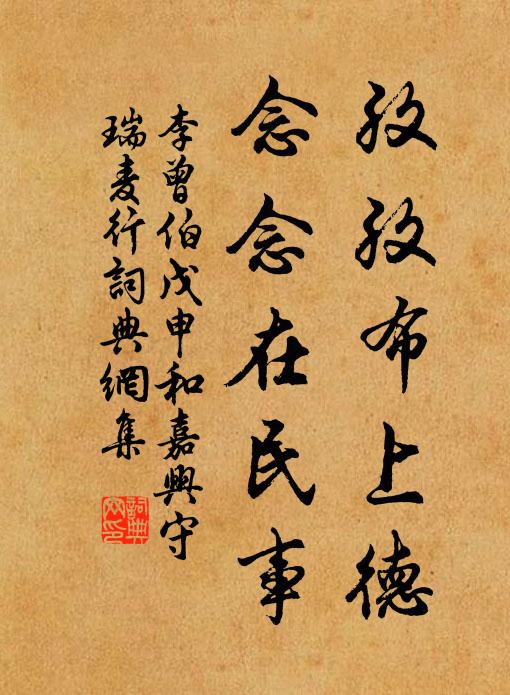 孜孜布上德
念念在民事
李曾伯戊申和嘉興守
瑞麦行詞典網集
詞典
网印